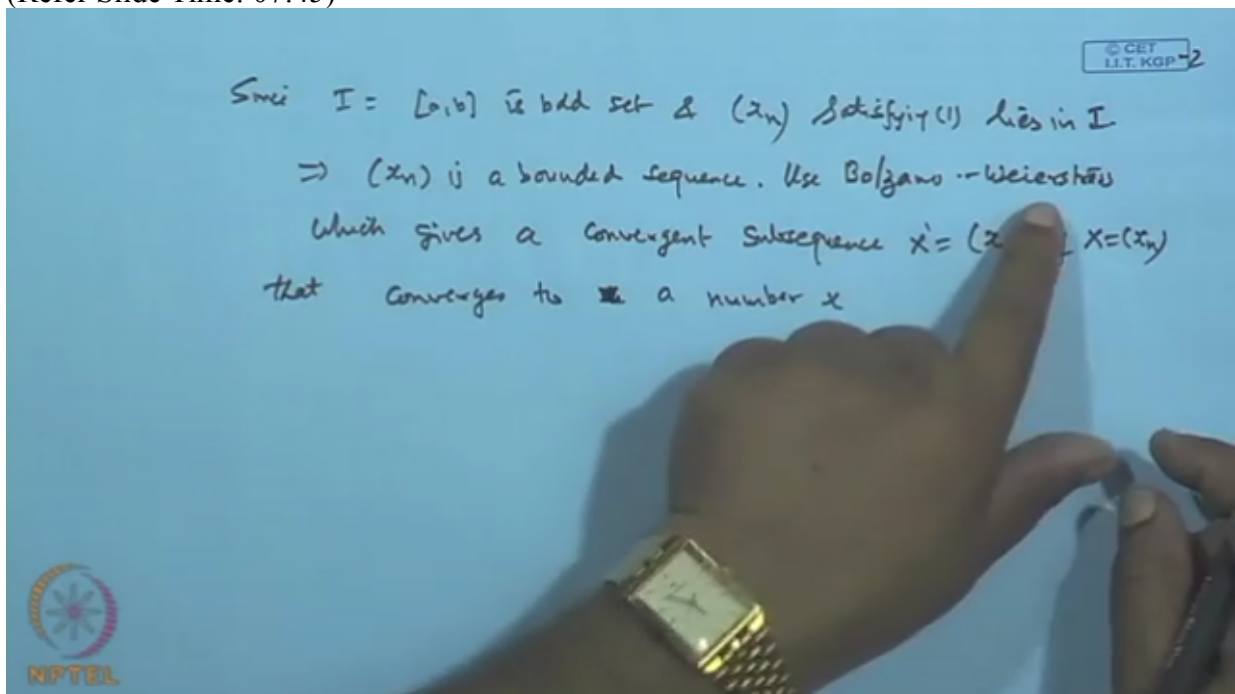 (Refer Slide Time: 07:45)
© CET
I.I.T. KGP -2
Since I = [a,b] is bdd set & (xn) Satisfying (1) lies in I.
⇒ (xn) is a bounded sequence. Use Bolzano - Weierstrass
which gives a convergent Subsequence X' = (x X = (xn)
that converges to a number x
NPTEL